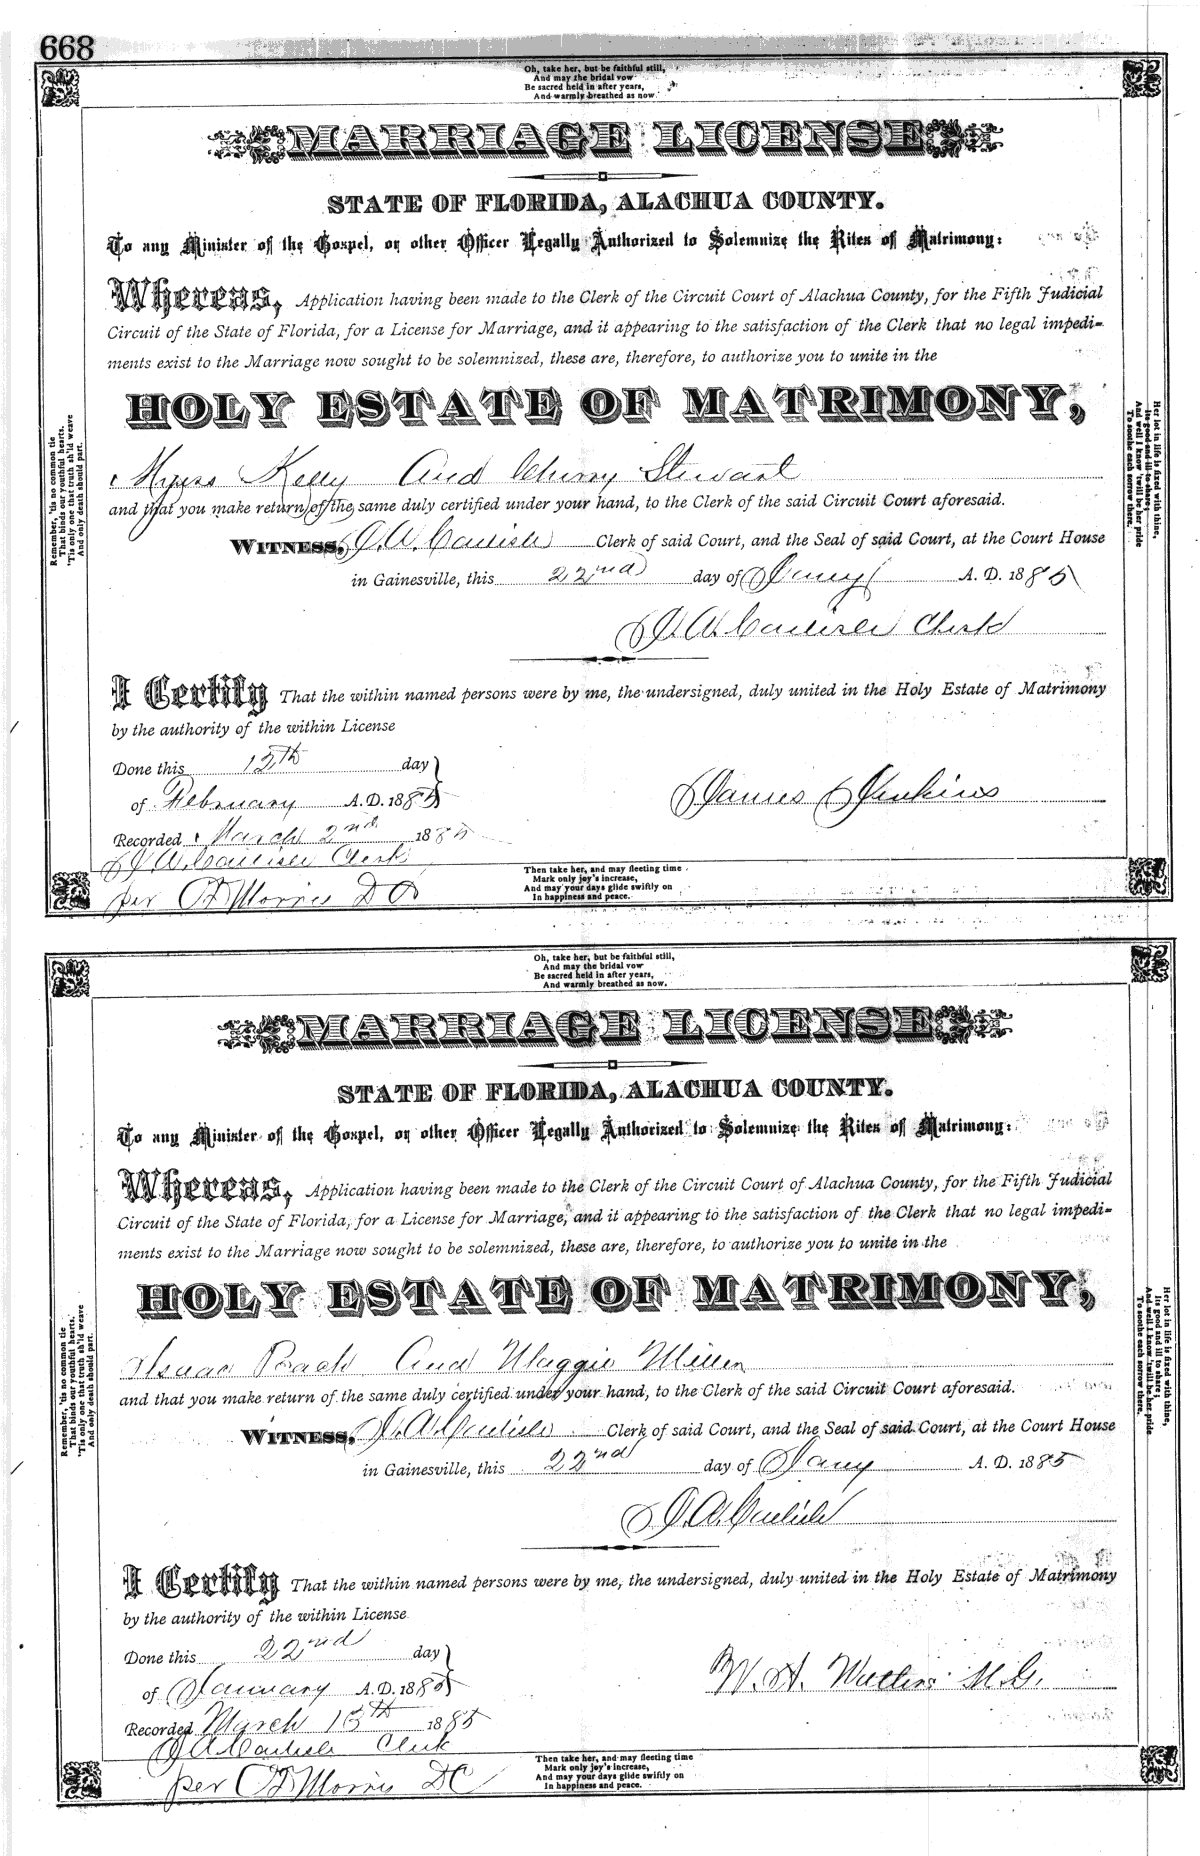 668
Oh, take her, but be faithful still,
And may the bridal vow
Be sacred held in after years,
And warmly breathed as now.
MARRIAGE LICENSE
STATE OF FLORIDA, ALACHUA COUNTY.
To any Minister of the Gospel, or other Officer Legally Authorized to Solemnize the Rites of Matrimony:
Whereas, Application having been made to the Clerk of the Circuit Court of Alachua County, for the Fifth Judicial
Circuit of the State of Florida, for a License for Marriage, and it appearing to the satisfaction of the Clerk that no legal impedi-
ments exist to the Marriage now sought to be solemnized, these are, therefore, to authorize you to unite in the
HOLY ESTATE OF MATRIMONY,
Kelly And Stewart
and that you make return of the same duly certified under your hand, to the Clerk of the said Circuit Court aforesaid.
WITNESS, J. A. Carlisle Clerk of said Court, and the Seal of said Court, at the Court House
in Gainesville, this 22nd day of Jany A. D. 1885
J. A. Carlisle Clerk
I Certify That the within named persons were by me, the undersigned, duly united in the Holy Estate of Matrimony
by the authority of the within License
Done this 12th day
of February A. D. 1885
James Jenkins
Recorded March 2nd 1885
J. A. Carlisle Clerk
per Morris DC
Remember, 'tis no common tie
That binds our youthful hearts,
'Tis only one that truth sh'ld weave
And only death should part.
Her lot in life is fixed with thine,
Its good and ill to share;
And well I know 'twill be her pride
To soothe each sorrow there.
Then take her, and may fleeting time
Mark only joy's increase,
And may your days glide swiftly on
In happiness and peace.
Oh, take her, but be faithful still,
And may the bridal vow
Be sacred held in after years,
And warmly breathed as now.
MARRIAGE LICENSE
STATE OF FLORIDA, ALACHUA COUNTY.
To any Minister of the Gospel, or other Officer Legally Authorized to Solemnize the Rites of Matrimony:
Whereas, Application having been made to the Clerk of the Circuit Court of Alachua County, for the Fifth Judicial
Circuit of the State of Florida, for a License for Marriage, and it appearing to the satisfaction of the Clerk that no legal impedi-
ments exist to the Marriage now sought to be solemnized, these are, therefore, to authorize you to unite in the
HOLY ESTATE OF MATRIMONY,
Isaac And Maggie Miller
and that you make return of the same duly certified under your hand, to the Clerk of the said Circuit Court aforesaid.
WITNESS, J. A. Carlisle Clerk of said Court, and the Seal of said Court, at the Court House
in Gainesville, this 22nd day of Jany A. D. 1885
J. A. Carlisle
I Certify That the within named persons were by me, the undersigned, duly united in the Holy Estate of Matrimony
by the authority of the within License
Done this 22nd day
of January A. D. 1885
W. H. M.G.
Recorded March 13th 1885
J A Carlisle Clerk
per Morris DC
Remember, 'tis no common tie
That binds our youthful hearts,
'Tis only one that truth sh'ld weave
And only death should part.
Her lot in life is fixed with thine,
Its good and ill to share;
And well I know 'twill be her pride
To soothe each sorrow there.
Then take her, and may fleeting time
Mark only joy's increase,
And may your days glide swiftly on
In happiness and peace.